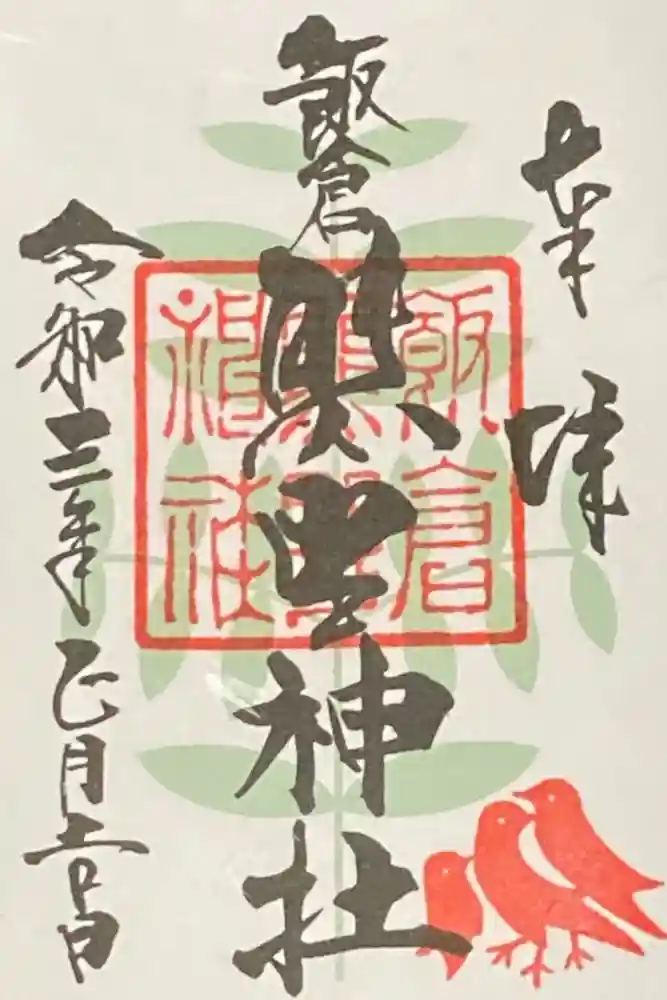 奉拝
飯倉
熊野神社
令和三年正月吉日
飯倉
熊野
神社